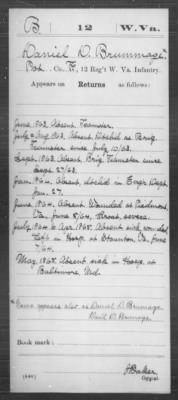 B | 12 | W. Va.
Daniel D. Brummage
Pvt., Co. F, 12 Reg't W. Va. Infantry.
Appears on
Returns
as follows:
June 1863, Absent, Teamster.
July & Aug 1863, Absent, Detchd as Brig.
Teamster since July 10/63.
Sept. 1863, Absent, Brig. Teamster since
27/63.
Jan. 1864, Absent, detchd in
Jan. 27.
June 1864, Absent, Wounded at Piedmont
Va., June 5/64, throat, severe.
July 1864 to Apr. 1865, Absent sick wounded
left in Hosp. at Staunton, Va., June
7/64.
May 1865, Absent sick in Hosp. at
Baltimore, Md.
Name appears also as Daniel D. Brumage
D. Brumage
Book mark:
(646)
Baker
Copyist.